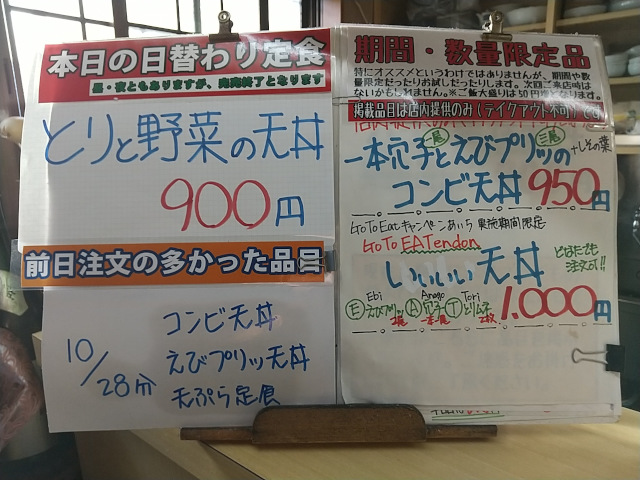 本日の日替わり定食
昼・夜ともありますが、完売終了となります
とりと野菜の天丼
900円
前日注文の多かった品目
10/28分
コンビ天丼
えびプリッ天丼
天ぷら定食
期間・数量限定品
特にオススメというわけではありませんが、期間や数
量限定だったりお試しだったりします。次回ご来店時は
ないかもしれません。※ご飯大盛りは50円増となります。
掲載品目は店内提供のみ(テイクアウト不可)です
一尾 三尾
一本穴子とえびプリッの +しその葉
コンビ天丼 950円
GoToEatキャンペーンあいち 実施期間限定
GoTo EATendon
いいいい天丼
とはたでも
注文OK!!
Ebi Anago Tori
Eえびプリッ A穴子 Tとりムネ 1,000円
2尾 一本 2枚